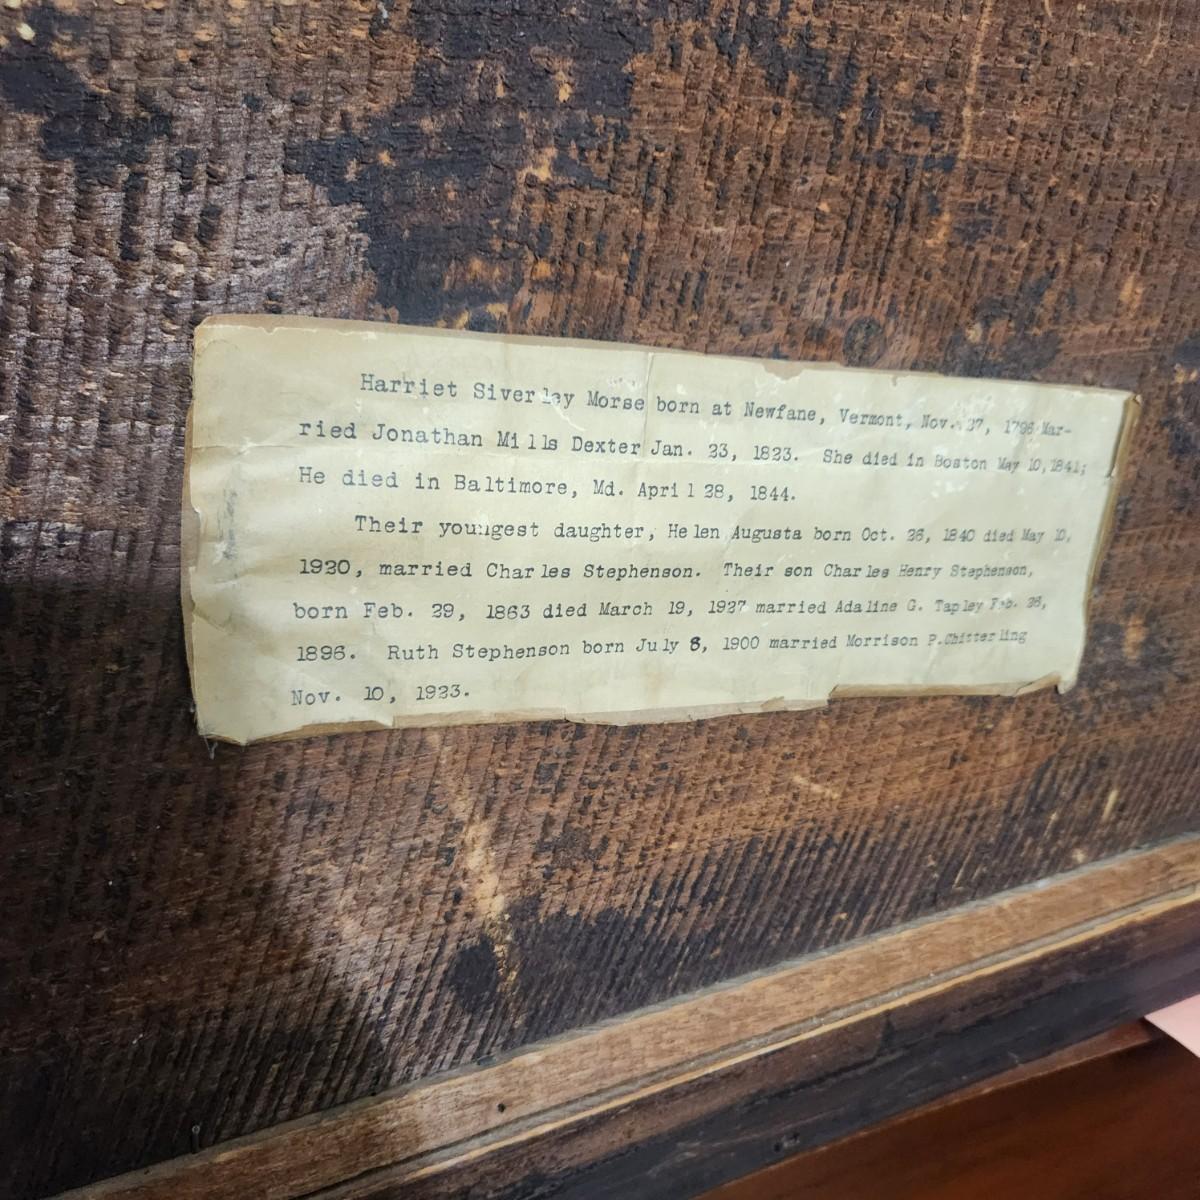 Harriet Siverley Morse born at Newfane, Vermont, Nov. 27, 1796 Mar-
ried Jonathan Mills Dexter Jan. 23, 1823. She died in Boston May 10, 1841;
He died in Baltimore, Md. April 28, 1844.
Their youngest daughter, Helen Augusta born Oct. 26, 1840 died May 10,
1920, married Charles Stephenson. Their son Charles Henry Stephenson,
born Feb. 29, 1863 died March 19, 1927 married Adaline G. Tapley Feb. 26,
1896. Ruth Stephenson born July 8, 1900 married Morrison P. Chitterling
Nov. 10, 1923.